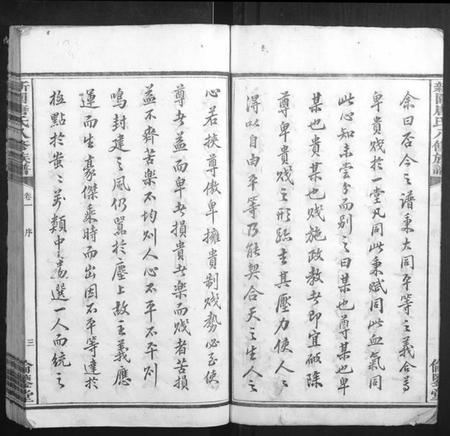 余曰否今之譜秉大同平等之義合尊
卑貴賤於一堂凡同此秉賦同此血氣同
此心知未嘗分而別之曰某也尊某也卑
某也貴某也賤施政教者即宜破除
尊卑貴賤之形跡去其壓力使人人
得以自由平等乃能契合天之生人之
心若挾尊傲卑擁貴制賤勢必至使
尊者益而卑者損貴者樂而賤者苦損
益不齊苦樂不均則人心不平不平則
鳴封建之風仍囂於塵上故主義應
運而生豪傑乘時而出因不平等遂於
林點於貴之萬類中選一人而統之
新 八修族譜
卷一 序
三